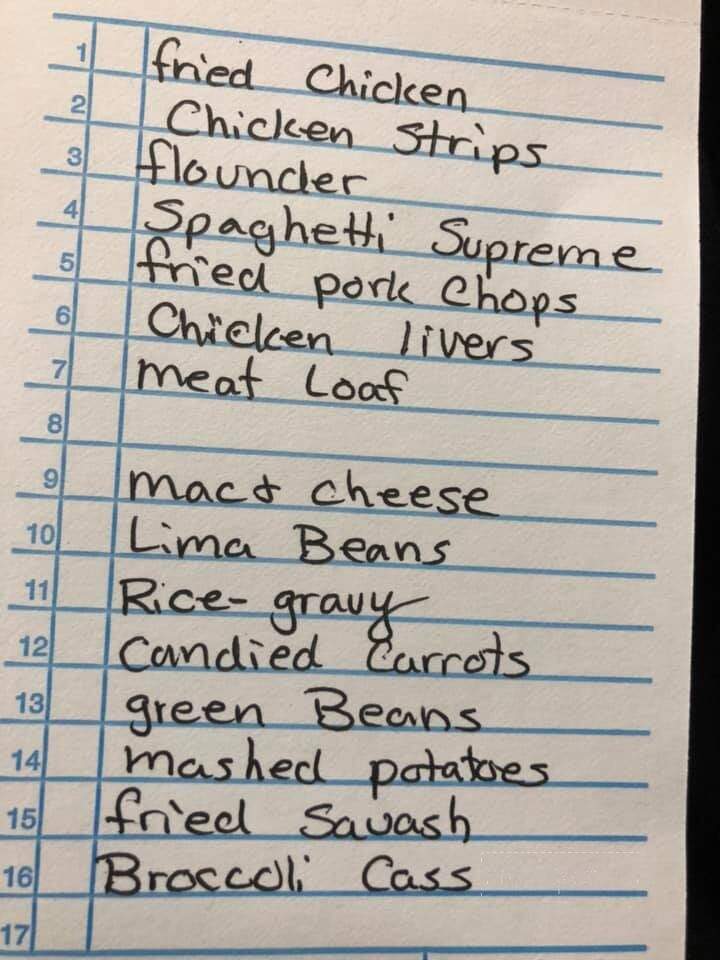 1 fried Chicken
2 Chicken Strips
3 flounder
4 Spaghetti Supreme
5 fried pork Chops
6 Chicken livers
7 meat Loaf
8
9 mac & cheese
10 Lima Beans
11 Rice- gravy
12 Candied Carrots
13 green Beans
14 mashed potatoes
15 fried Sauash
16 Broccoli Cass
17